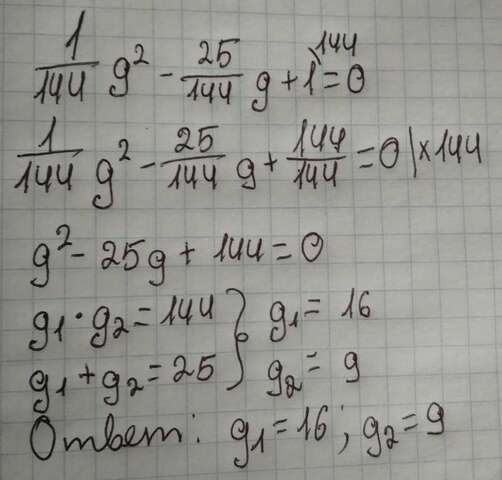 1/144 g² - 25/144 g + 1\144 = 0
1/144 g² - 25/144 g + 144/144 = 0 | ×144
g² - 25g + 144 = 0
g1 · g2 = 144 } g1 = 16
g1 + g2 = 25 } g2 = 9
Ответ: g1 = 16; g2 = 9